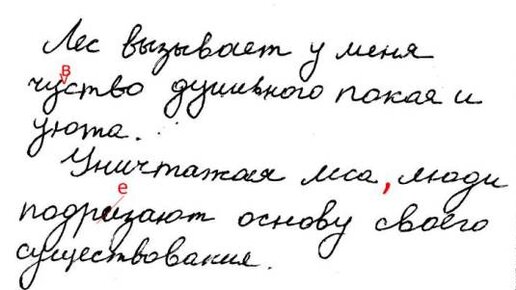 Лес вызывает у меня
в
чуство душивного покая и
уюта.
Уничтажая леса, люди
е
подризают основу своего
существования.